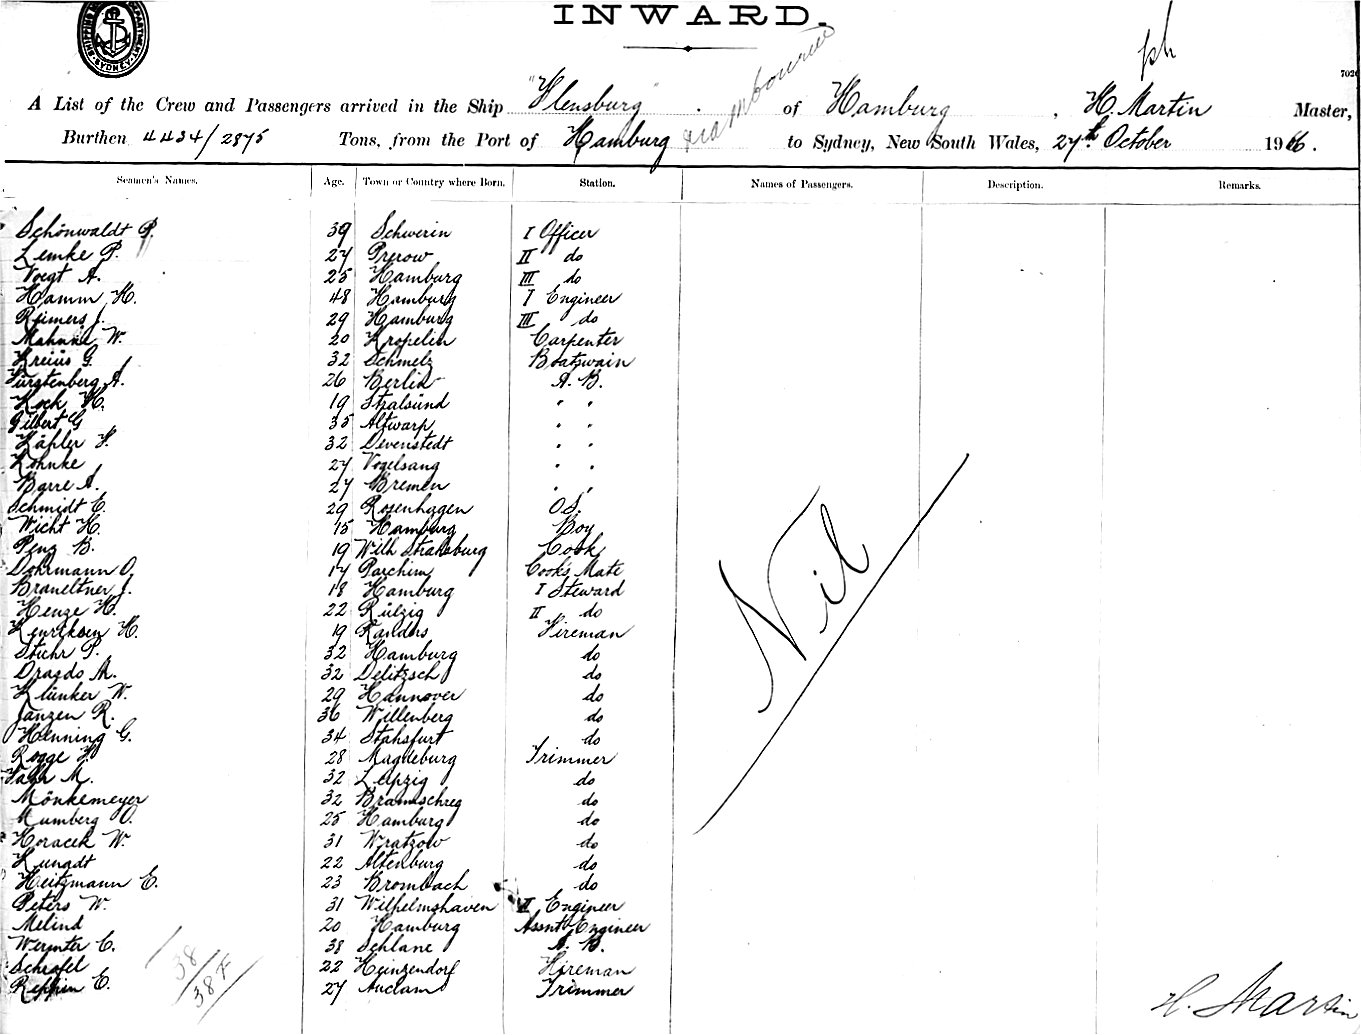 SHIPPING DEPARTMENT. SYDNEY.
INWARD.
ph
A List of the Crew and Passengers arrived in the Ship "Flensburg" of Hamburg, H. Martin Master,
Burthen 4434/2875 Tons, from the Port of Hamburg via Melbourne to Sydney, New South Wales, 27th October 1906.
Seamen's Names. Age. Town or Country where Born. Station. Names of Passengers. Description. Remarks.
Schönwaldt P. 39 Schwerin I Officer
Lemke P. 27 Prerow II do
Voegt A. 25 Hamburg III do
Hamm H. 48 Hamburg I Engineer
Reimers J. 29 Hamburg III do
W. 20 Kropelin Carpenter
G. 32 Schmelz Boatswain
Fürstenberg A. 26 Berlin A. B.
Kock H. 19 Stralsünd " "
Gilbert G 35 Altwarp " "
Kähler F. 32 Devenstedt " "
Kohnke 27 Vogelsang " "
Barre A. 27 Bremen " "
Schmidt E. 29 Rosenhagen O.S.
Wicht H. 15 Hamburg Boy
Penz B. 19 Wilh Cook
Dohrmann O. 17 Parchim Cooks Mate
J. 18 Hamburg I Steward
Henze H. 22 II do
Henriksen H. 19 Randers Fireman
Stuhr P. 32 Hamburg do
Dragdo M. 32 Delitzsch do
Klünker W. 29 Hannover do
Janzen R. 36 Willenberg do
Henning G. 34 Stahsfurt do
Rogge F. 28 Magdeburg Trimmer
M. 32 Leipzig do
Mönkemeyer 32 do
Mumberg O. 25 Hamburg do
Horacek W. 31 Wratzow do
Kunadt 22 Altenburg do
Heitzmann E. 23 Brombach do
Peters W. 31 Wilhelmshaven II Engineer
Melind 20 Hamburg Assnt Engineer
Wermter C. 38 Schlane A. B.
Schrafel 22 Heinzendorf Fireman
Reppin E. 27 Anclam Trimmer
Nil
38
38 F
H. Martin